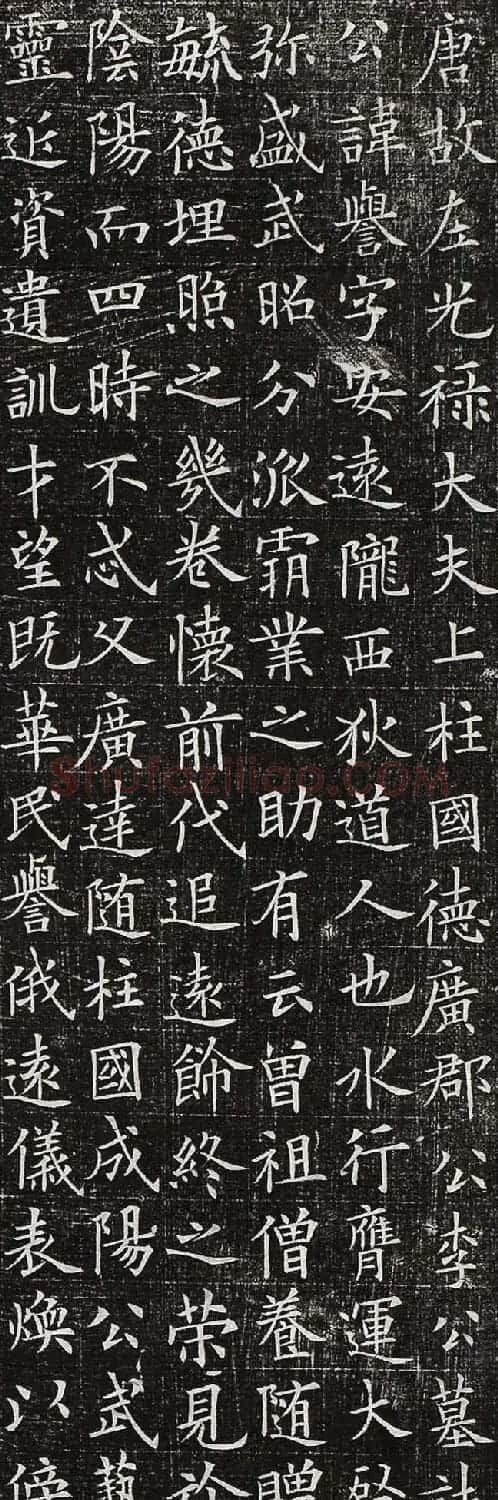 唐故左光禄大夫上柱國德廣郡公李公墓
公諱譽字安遠隴西狄道人也水行膺運大
弥盛武昭分派霸業之助有云曾祖僧養随贈
毓德埋照之幾卷懷前代追遠飾終之荣見於
陰陽而四時不忒父廣達随柱國成陽公武
靈近資遺訓才望既華民譽俄遠儀表煥以
Shufaziliao.COM